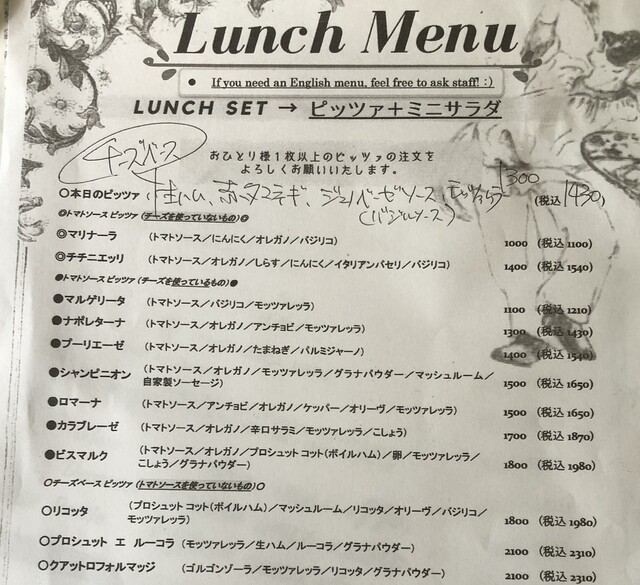 Lunch Menu
● If you need an English menu, feel free to ask staff! :)
LUNCH SET → ピッツァ+ミニサラダ
チーズベース
おひとり様1枚以上のピッツァの注文を
よろしくお願いいたします。
○本日のピッツァ 生ハム、赤タマネギ、ジェノベーゼソース、モッツァレラ 1300 (税込 1430)
(バジルソース)
◎トマトソース ピッツァ (チーズを使っていないもの) ◎
◎マリナーラ (トマトソース/にんにく/オレガノ/バジリコ) 1000 (税込 1100)
◎チチニエッリ (トマトソース/オレガノ/しらす/にんにく/イタリアンパセリ/バジリコ) 1400 (税込 1540)
●トマトソース ピッツァ (チーズを使っているもの) ●
●マルゲリータ (トマトソース/バジリコ/モッツァレッラ) 1100 (税込 1210)
●ナポレターナ (トマトソース/オレガノ/アンチョビ/モッツァレッラ) 1300 (税込 1430)
●プーリエーゼ (トマトソース/オレガノ/たまねぎ/パルミジャーノ) 1400 (税込 1540)
●シャンピニオン (トマトソース/オレガノ/モッツァレッラ/グラナパウダー/マッシュルーム/
自家製ソーセージ) 1500 (税込 1650)
●ロマーナ (トマトソース/アンチョビ/オレガノ/ケッパー/オリーヴ/モッツァレッラ) 1500 (税込 1650)
●カラブレーゼ (トマトソース/オレガノ/辛口サラミ/モッツァレッラ/こしょう) 1700 (税込 1870)
●ビスマルク (トマトソース/オレガノ/プロシュット コット(ボイルハム)/卵/モッツァレッラ/
こしょう/グラナパウダー) 1800 (税込 1980)
○チーズベース ピッツァ (トマトソースを使っていないもの) ○
○リコッタ (プロシュット コット(ボイルハム)/マッシュルーム/リコッタ/オリーヴ/バジリコ/
モッツァレッラ) 1800 (税込 1980)
○プロシュット エ ルーコラ (モッツァレッラ/生ハム/ルーコラ/グラナパウダー) 2100 (税込 2310)
○クアットロフォルマッジ (ゴルゴンゾーラ/モッツァレッラ/リコッタ/グラナパウダー) 2100 (税込 2310)